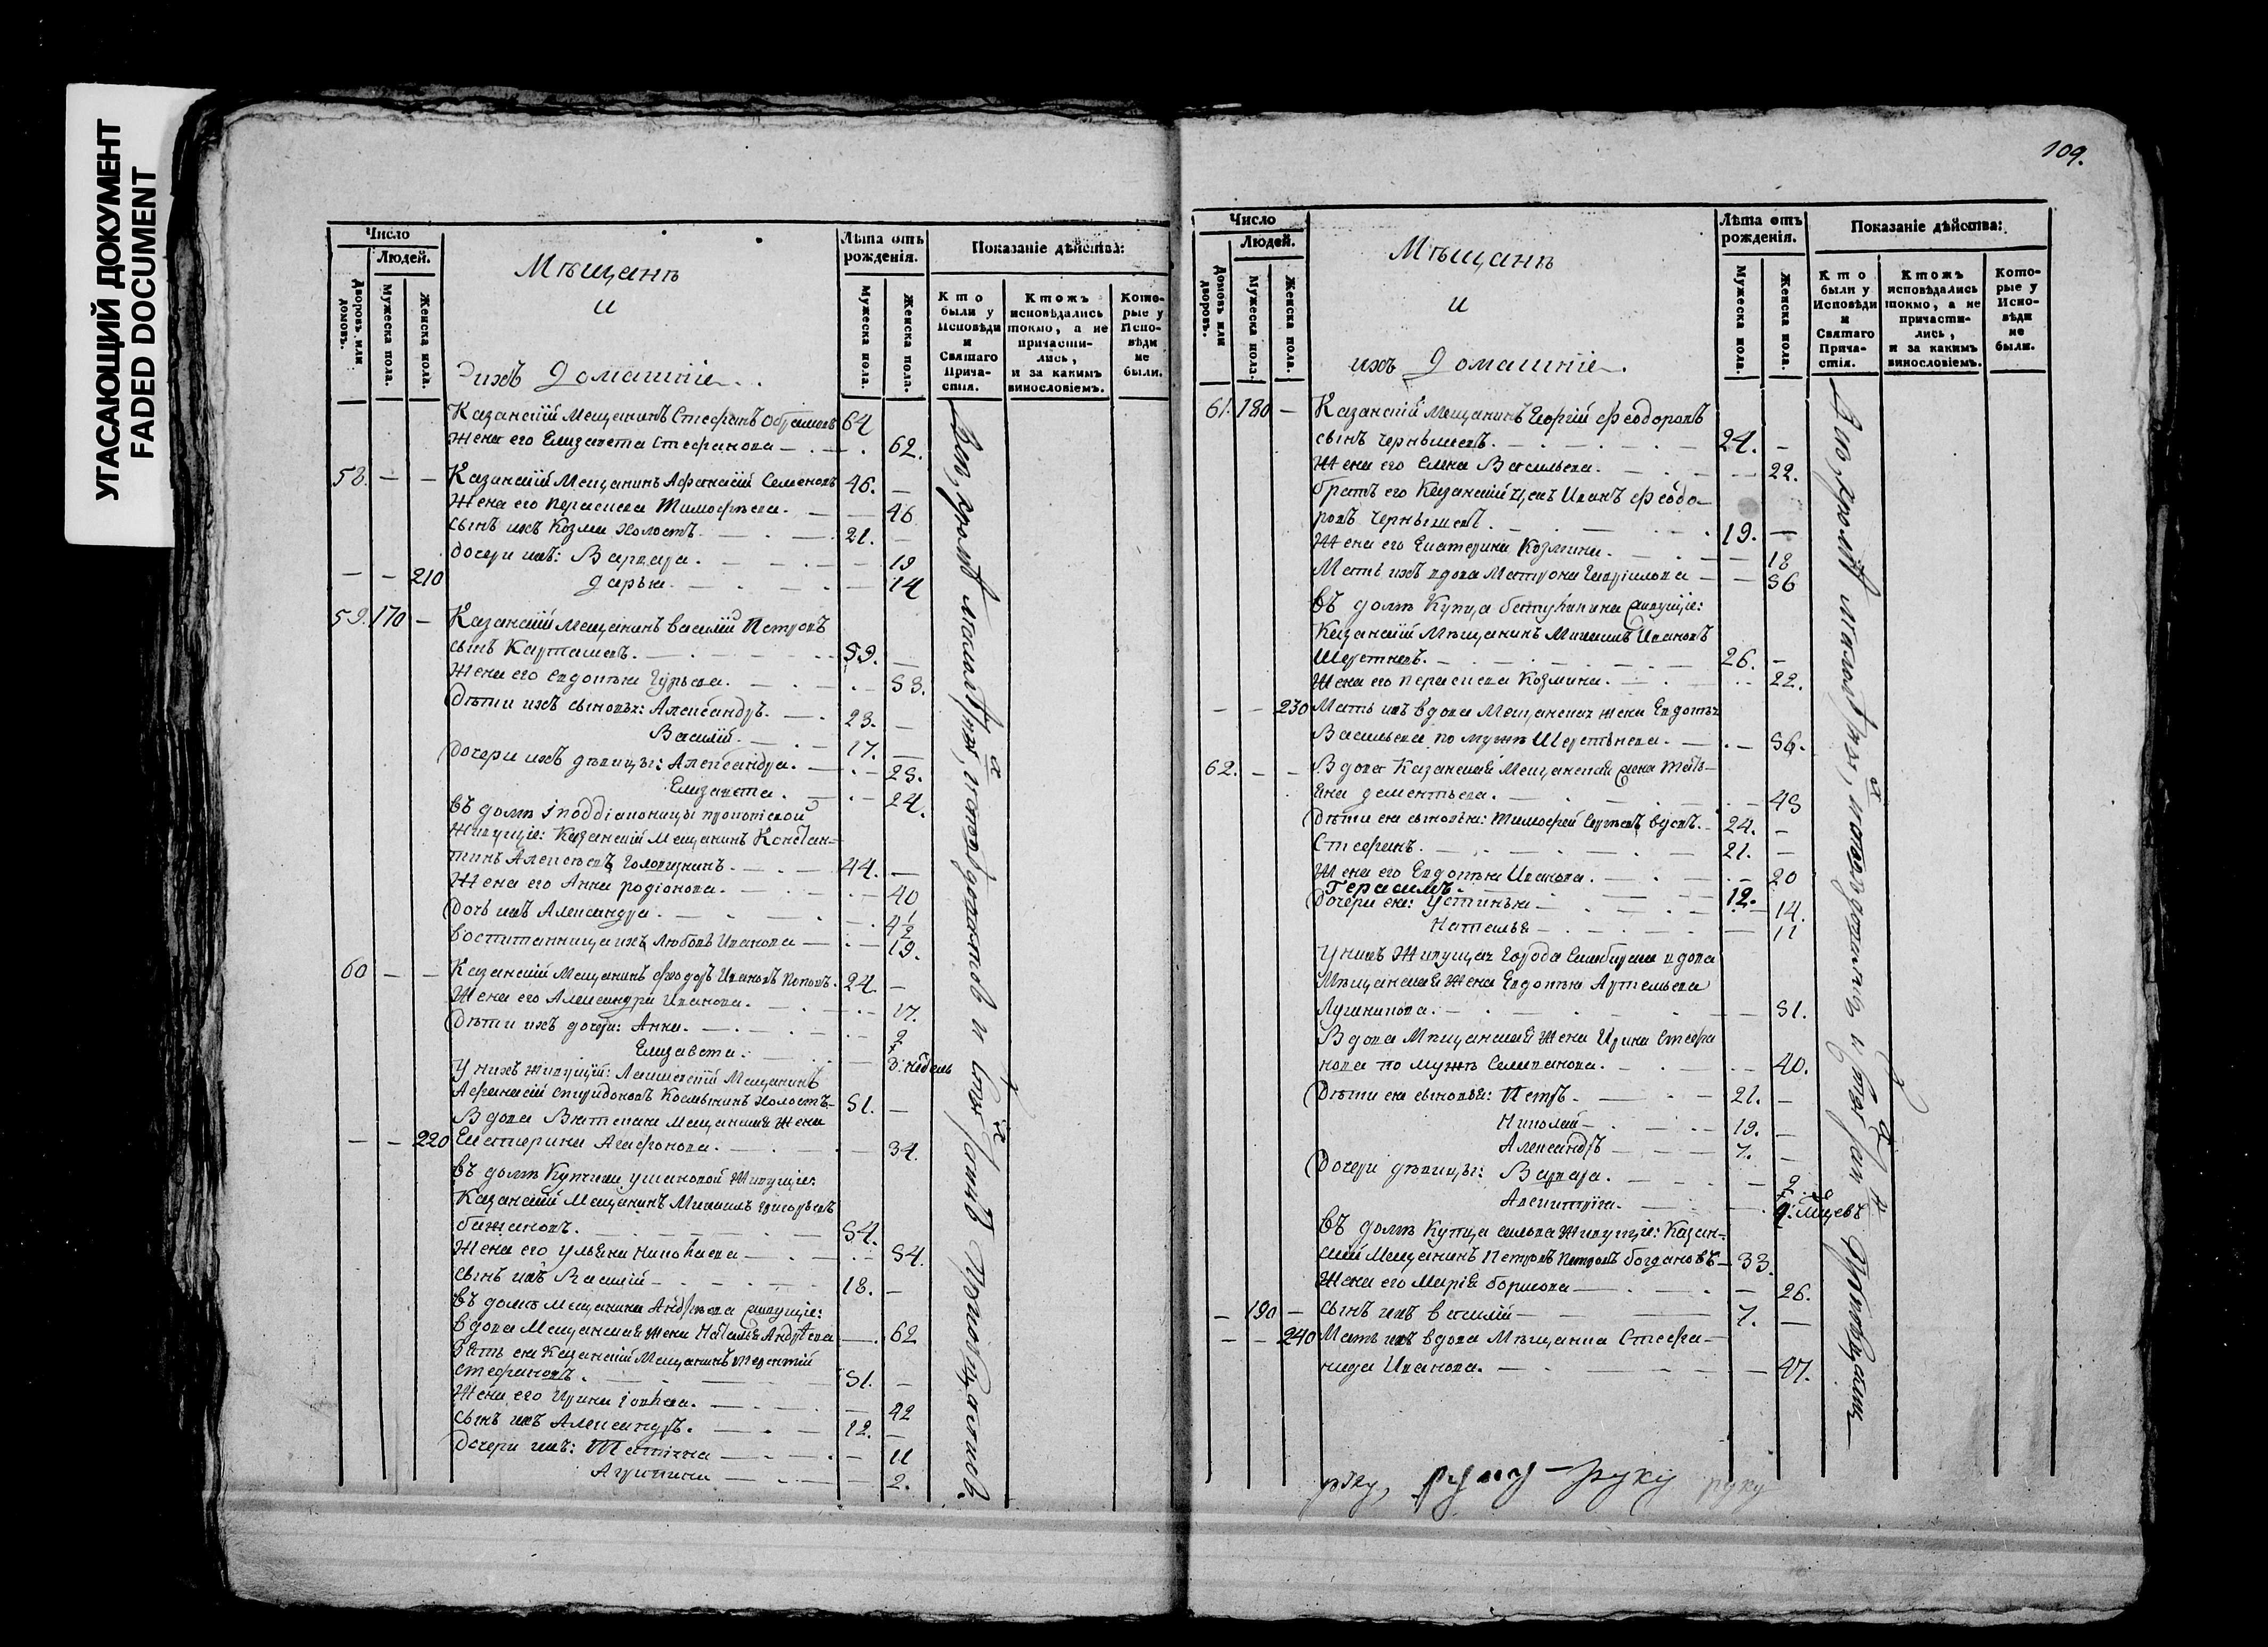 УТАСАЮЩИЙ ДОКУМЕНТ
FADED DOCUMENT
Число
Людей.
Дворовъ или домовъ.
Мужеска пола.
Женска пола.
Мѣщанѣ
и
ихъ Домашніе.
Лѣта отъ рожденія.
Мужеска пола.
Женска пола.
Показаніе дѣйства:
Кто были у Исповѣди и Святаго Причастія.
Ктожъ исповѣдались токмо, а не причастились, и за какимъ винословіемъ.
Которые у Исповѣди не были.
Казанскій Мещанинъ Стефанъ 64
Жена его Елизавета Стефанова — . — . 62.
58. — — Казанскій Мещанинъ Афанасій Семеновъ 46. —
Жена его Параскева Тимофѣева. — — 46
Сынъ ихъ Козма холостъ. — . — . 21. —
Дочери ихъ: Варвара. — . — . — 19
— — 210 Дарья. — . — . — 14
59. 170 — Казанскій Мещанинъ Василій Петровъ
сынъ Карташевъ. — . — 59. —
Жена его Евдокія Гурьева. — . — 53.
Дѣти ихъ сыновья: Александръ. — . 23. —
Василій. — . — 17. —
Дочери ихъ дѣвицы: Александра. — . — 25.
Елизавета. — . — 24.
Въ домѣ
Живущіе: Казанскій Мещанинъ Констан=
тинъ Алексѣевъ — . — 44. —
Жена его Анна Родіонова. — . — 40
Дочь ихъ Александра. — . — 4 1/2
Воспитанница ихъ Любовь Иванова — . — 19.
60 — — Казанскій Мещанинъ Ѳеодоръ Ивановъ Поповъ. 24. —
Жена его Александра Иванова. — . — 17.
Дѣти ихъ дочери: Анна. — . — 2
Елизавета. — . — 3. недѣль
У нихъ живущій: Лаишевскій Мещанинъ
Афанасій Спиридоновъ холостъ— 51. —
Вдова Мещанская жена
— — 220 Екатерина Агафонова. — . — 34.
Въ домѣ Купчихи Ушаковой Живущіе:
Казанскій Мещанинъ Михаилъ Григорьевъ
Бажановъ. — . — 54.
Жена его Ульяна Николаева — . — 54.
Сынъ ихъ Василій — . — 18. —
Въ домѣ Мещанина Андреева живущіе:
Вдова Мещанская жена Наталья Андреева — . 62
Зять ея Казанскій Мещанинъ Терентій
Стефановъ. — 51. —
Жена его Ирина — . — 42
Сынъ ихъ Александръ. — . — 12. —
Дочери ихъ: Татіяна — . — 11
— . — 2.
109.
Число
Людей.
Домовъ или дворовъ.
Мужеска пола.
Женска пола.
Мѣщанѣ
и
ихъ Домашніе.
Лѣта отъ рожденія.
Мужеска пола.
Женска пола.
Показаніе дѣйства:
Кто были у Исповѣди и Святаго Причастія.
Ктожъ исповѣдались токмо, а не причастились, и за какимъ винословіемъ.
Которые у Исповѣди не были.
61. 180 — Казанскій Мещанинъ Георгій Ѳеодоровъ
сынъ Чернышевъ. — . — 24. —
Жена его Елена Васильева. — . — 22.
Братъ его Казанскій Иванъ Ѳеодо—
ровъ Чернышевъ. — . — 19. —
Жена его Екатерина Козмина. — . — 18
Мать ихъ вдова Матрона Гавріилова — — 56
Въ домѣ Купца живущіе:
Казанскій Мѣщанинъ Михаилъ Ивановъ
Шерстневъ. — . — 26. —
Жена его Параскева Козмина. — . — 22.
— — 230 Мать ихъ вдова Мещанская жена Евдокія
Васильева по мужѣ Шерстнева. — . — 56.
62. — — Вдова Казанская Мещанская жена Тать—
яна Дементьева. — . — 45
Дѣти ея сыновья: Тимофей 24. —
Стефанъ. — . — 21. —
Жена его Евдокія Иванова. — . — 20
Герасимъ. — 12.
Дочери ея: Устинья — . — 14.
Наталья — . — 11
У нихъ Живущая Города Симбирска вдова
Мѣщанская Жена Евдокія Артемьева
— . — 51.
Вдова Мѣщанская Жена Ирина Стефа
нова по мужѣ Селиванова. — . — 40.
Дѣти ея сыновья: Петръ. — . — 21. —
Николай — . — 19. —
Александръ — 7. —
Дочери дѣвицы: Варвара. — . — 2
Алевтина. — . — мѣсяцевъ
Въ домѣ Купца Живущіе: Казан=
скій Мещанинъ Петръ Петровъ Богдановъ— 33.
Жена его Марія Борисова — . — 26.
— 190 — Сынъ ихъ Василій — 7. —
— — 240 Мать ихъ вдова Мѣщанка Стефа—
нида Иванова. — . — 47.
руку руку руку